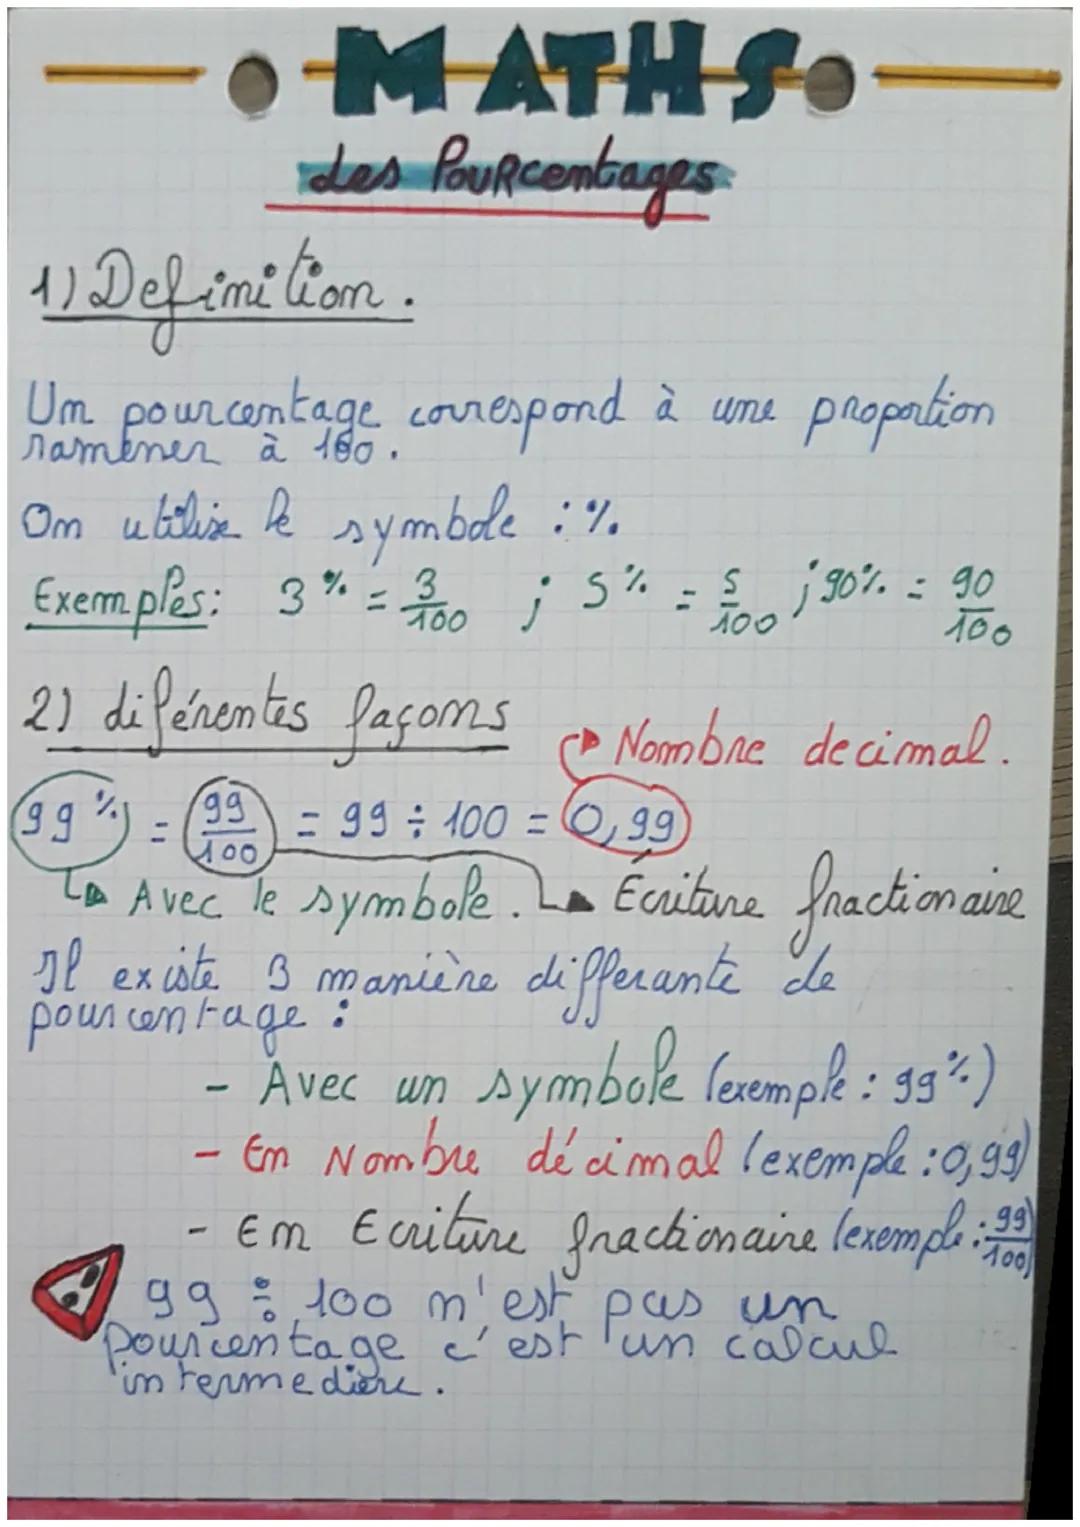 MATHS
Les Pourcentages
1) Definition.
Un pourcentage correspond à une proportion
ramener à 100.
On utilise le symbole : %.
Exemples: 3% = 3/100 ; 5% = 5/100 ; 90% = 90/100
2) diférentes façons
Nombre decimal.
99% = 99/100 = 99 ÷ 100 = 0,99
Avec le symbole. Écriture fractionaire
Il existe 3 manière differante de
pourcentage :
- Avec un symbole (exemple : 99%)
- En Nombre décimal (exemple : 0,99)
- En Ecriture fractionaire (exemple : 99/100)
99 ÷ 100 n'est pas un
pourcentage c'est un calcul
intermediere.